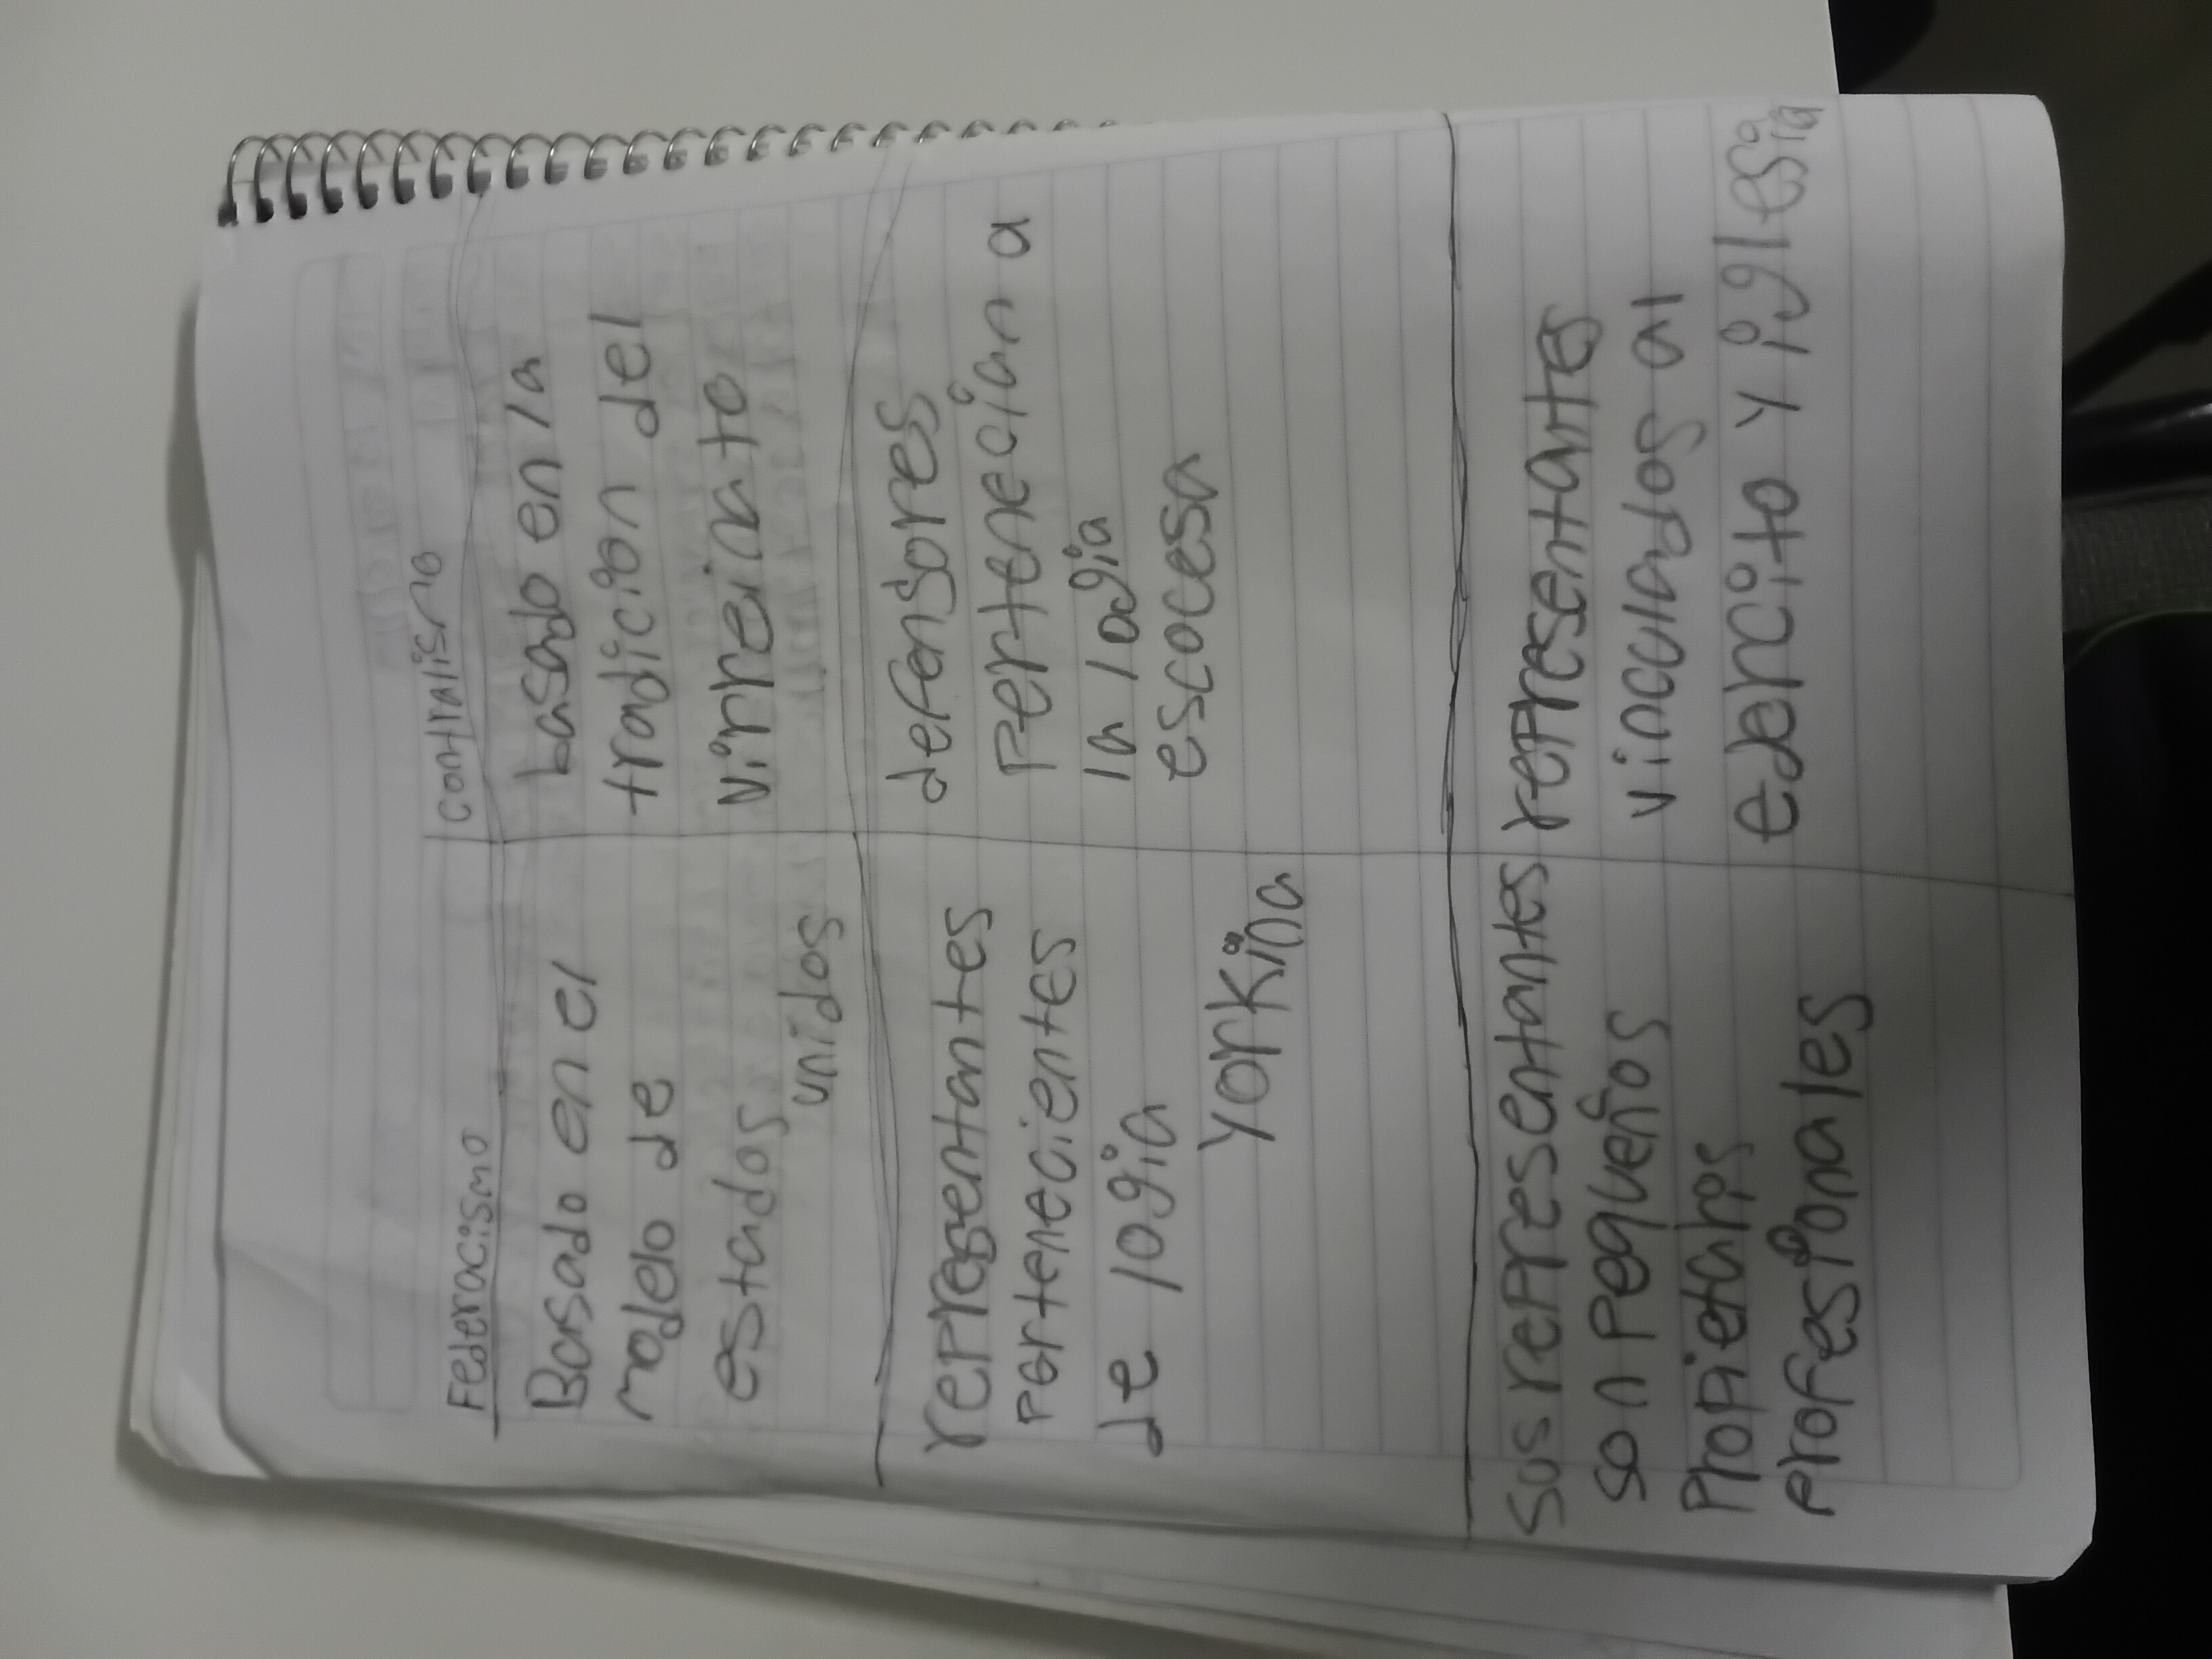 Federacismo
Basado en el
modelo de
estados
unidos
representantes
pertenecientes
de logia
Yorkina
Sus representantes
son pequeños
Propietarps
profesionales
contralismo
basado en la
tradición del
virreinato
defensores
Pertenecian a
la logia
escocesa
representantes
vinculados al
ejercito y iglesia